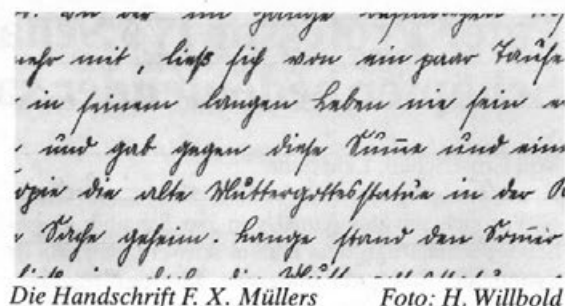 an der im Gange
mehr mit, ließ sich von ein paar Tause
in seinem langen Leben nie sein
und gab gegen diese Sum̅e und eine
opie die alte Muttergottesstatue in der K
Sache geheim. Lange stand den Som̅er
die Muttergottesstatue
Die Handschrift F. X. Müllers Foto: H. Willbold